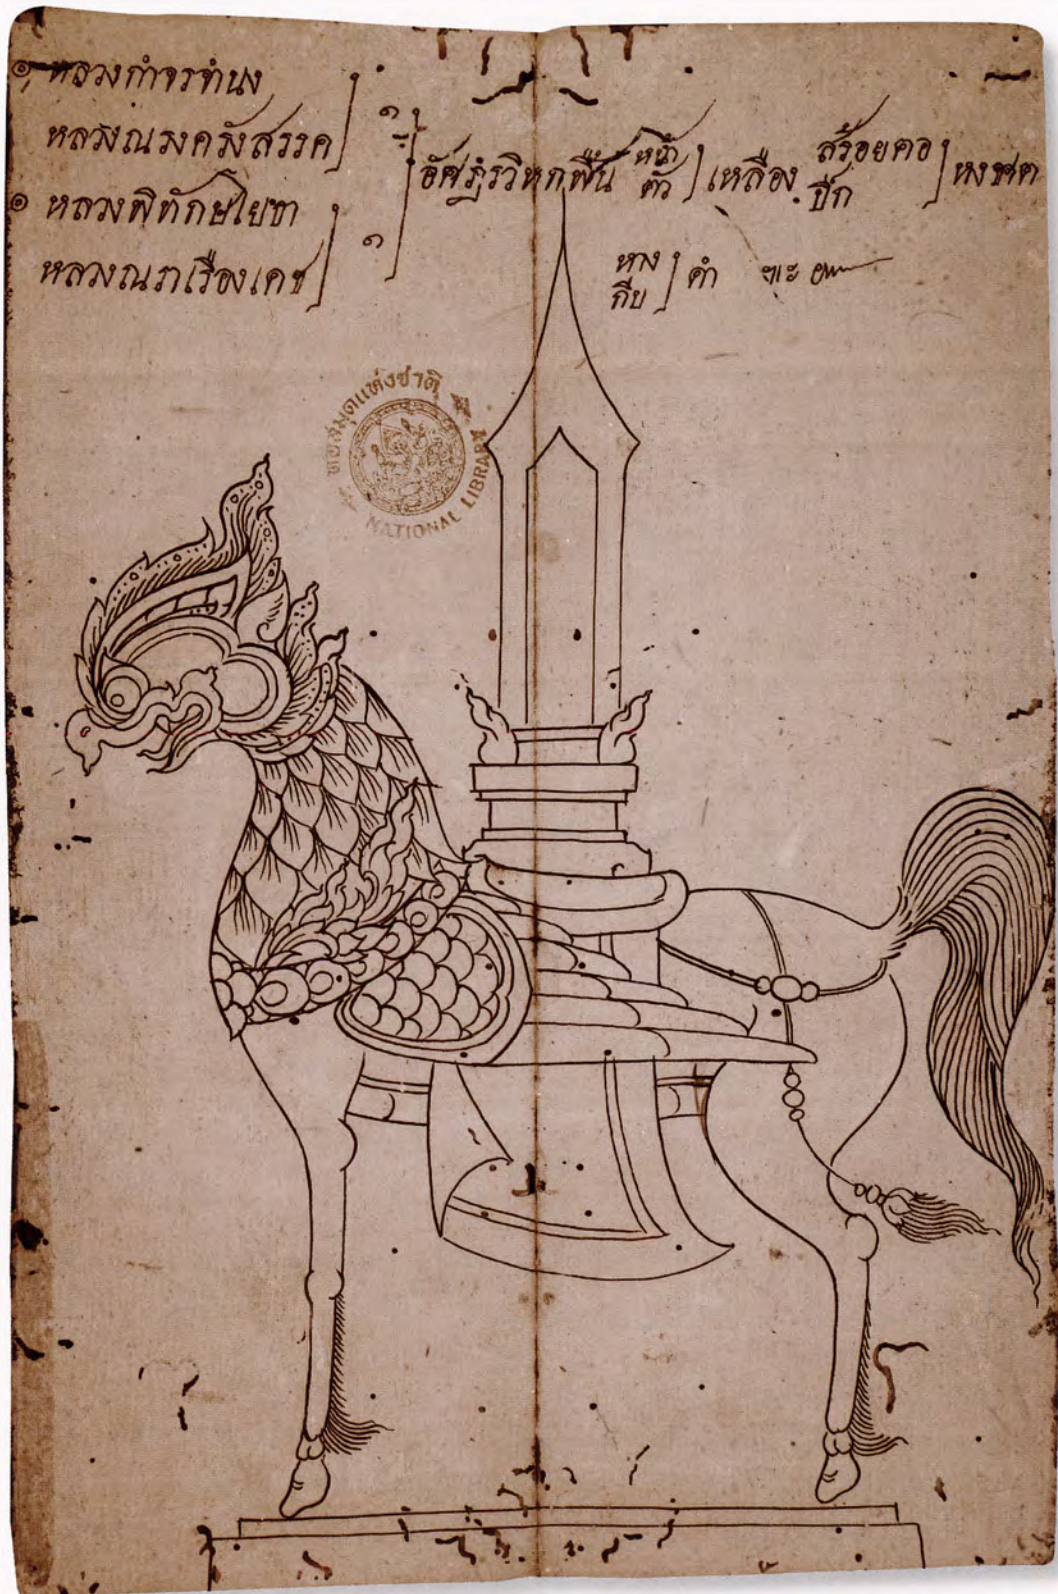 ๏ หลวงกำจรจำนง
หลวงณรงครังสรรค
๏ หลวงพิทักษโยธา
หลวงณราเรืองเดช
๑
๑
อัศฎรวิหกพื้น หน้า ตัว เหลือง สร้อยคอ ปีก หงชาด
หาง กีบ ดำ
หอสมุดแห่งชาติ
NATIONAL LIBRARY